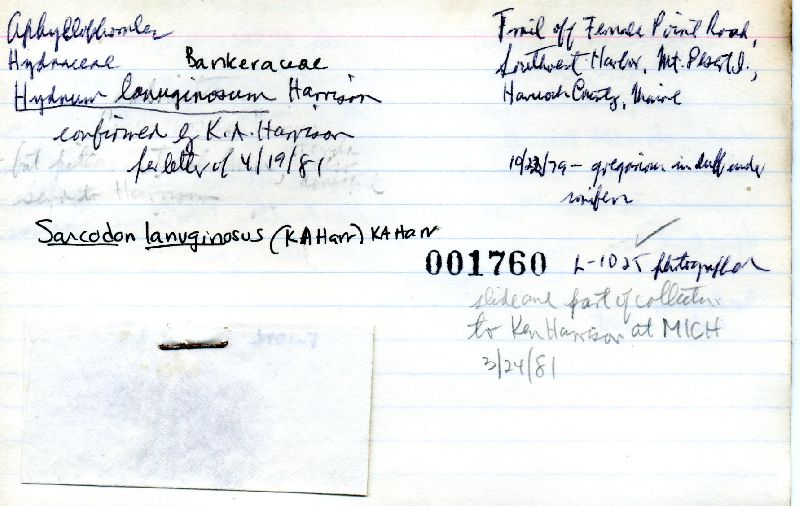 Aphyllophorales
Hydnaceae Bankeraceae
Hydnum lanuginosum Harrison
confirmed by K.A. Harrison
per letter of 4/19/81
sent to Harrison
Sarcodon lanuginosus (KA Harr) KA Harr
Trail off Fernald Point Road,
Southwest Harbor, Mt. Desert I.,
Hancock County, Maine
gregarious in duff under
conifers
001760 L-1025 photographed
slide and part of collection
to Ken Harrison at MICH
3/24/81